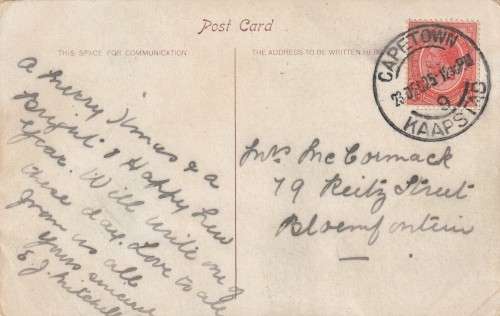 Post Card
THIS SPACE FOR COMMUNICATION
THE ADDRESS TO BE WRITTEN HERE
A Merry Xmas & a
Bright & Happy New
Year. Will write one of
these day. Love to all
from us all
yours sincere
E. J. Mitchell
CAPETOWN
23 DEC 25
9
KAAPSTAD
Mrs McCormack
79 Reitz Street
Bloemfontein